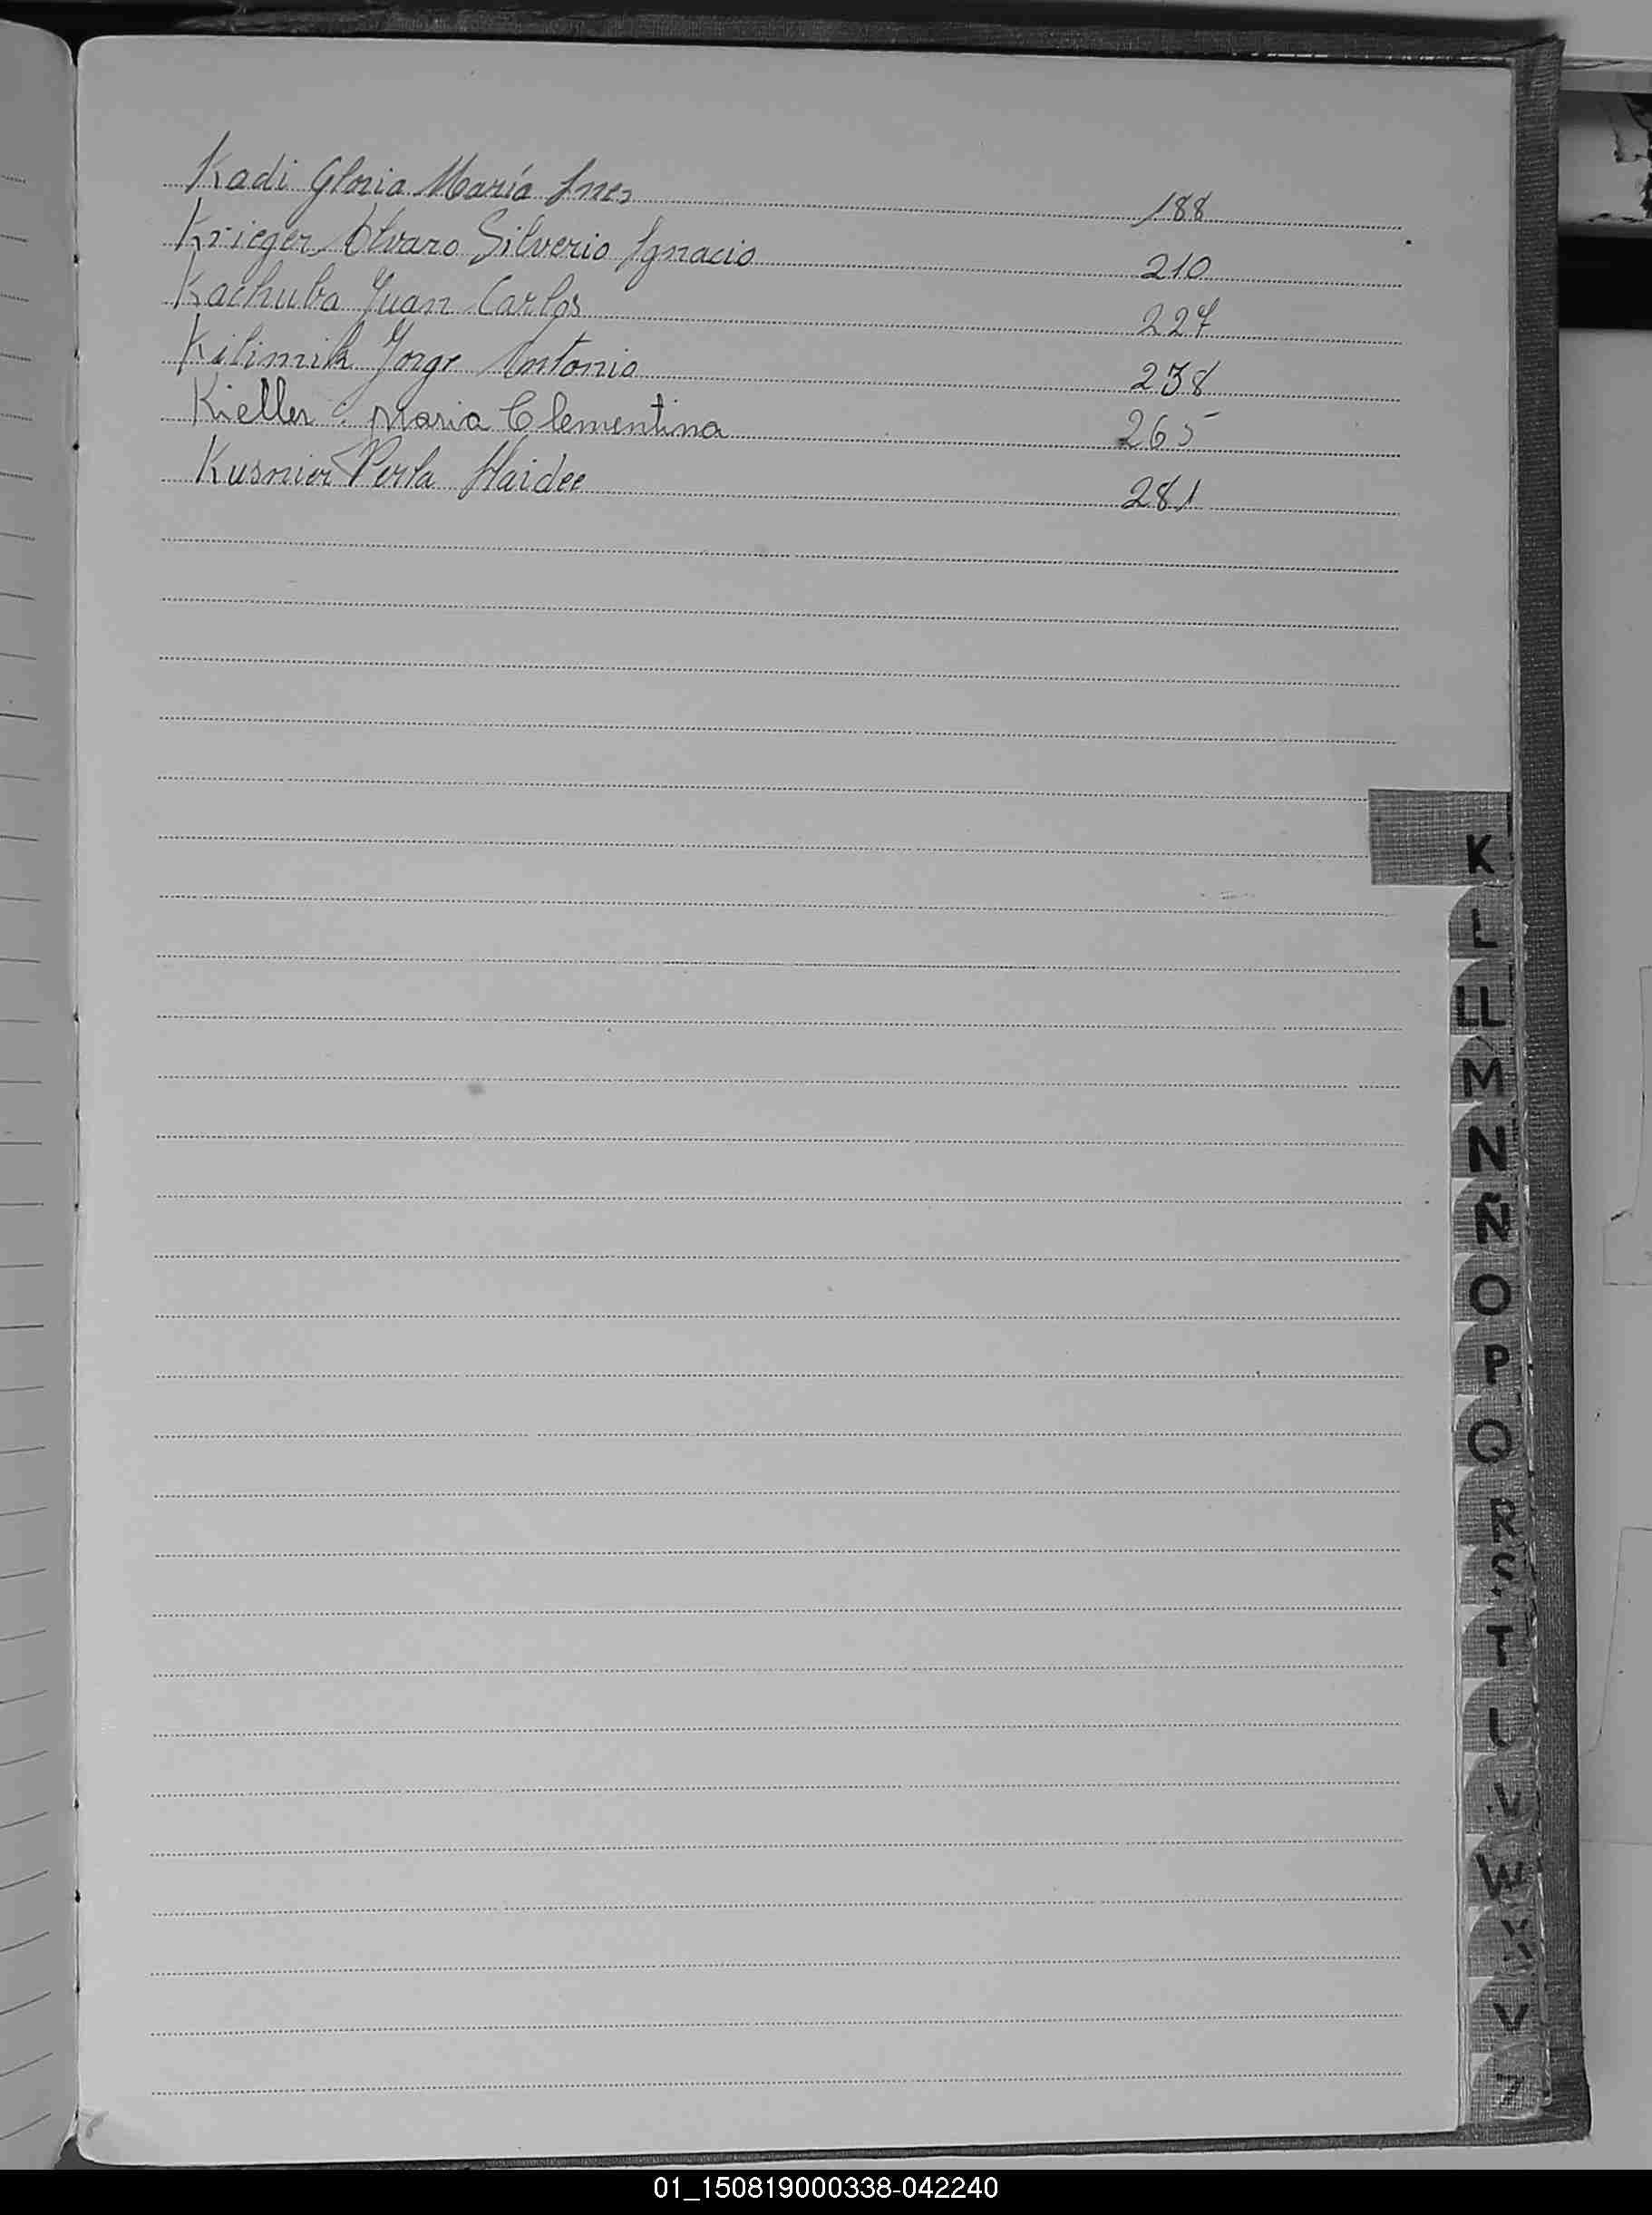 Kadi Gloria María Ines 188
Krieger, Alvaro Silverio Ignacio 210
Kachuba Juan Carlos 227
Kilimik Jorge Antonio 238
Kieller Maria Clementina 265
Kusnier Perla Haidee 281
K
L
LL
M
N
Ñ
O
P
Q
R
S
T
V
W
X
Z
01_150819000338-042240